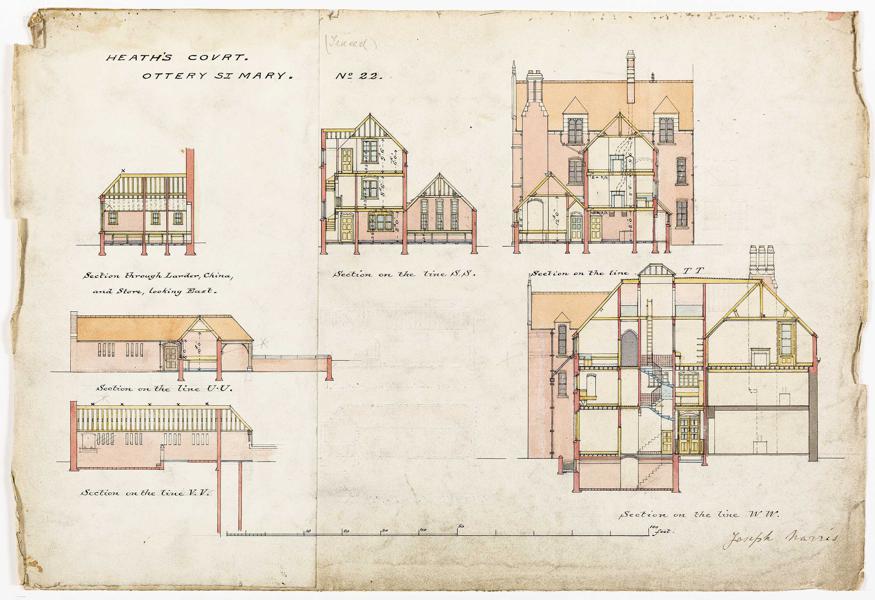 (Traced)
HEATH'S COVRT.
OTTERY ST MARY.
No 22.
Section through Larder, China,
and Store, looking East.
Section on the line S.S.
Section on the line T T
Section on the line U.U.
Section on the line V.V.
Section on the line W W.
feet.
Joseph Norris